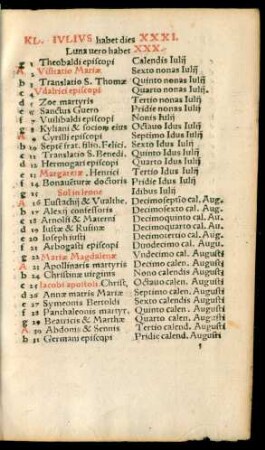 KL. IVLIVS habet dies XXXI.
Luna vero habet XXX.
g 1 Theobaldi episcopi Calendis Iulij
A 2 Visitatio Mariæ Sexto nonas Iulij
b 3 Translatio S. Thomæ Quinto nonas Iulij
c 4 Vdalrici episcopi Quarto nonas Iulij
d 5 Zoe martyris Tertio nonas Iulij
e 6 Sanctus Guero Pridie nonas Iulij
f 7 Vuilibaldi episcopi Nonis Iulij
g 8 Kyliani & sociorū eius Octauo Idus Iulij
A 9 Cyrilli episcopi Septimo Idus Iulij
b 10 Septē frat. filio. Felici. Sexto Idus Iulij
c 11 Translatio S. Benedi. Quinto Idus Iulij
d 12 Hermogari episcopi Quarto Idus Iulij
e 13 Margaretæ. Henrici Tertio Idus Iulij
f 14 Bonauēturæ doctoris Pridie Idus Iulij
g 15 Sol in leone Idibus Iulij
A 16 Eustachij & Vualthe. Decimoseptīo cal. Aug.
b 17 Alexij confessoris Decimosexto cal. Aug.
c 18 Arnolfi & Materni Decimoquinto cal. Au.
d 19 Iustæ & Rufinæ Decimoquarto cal. Au.
e 20 Ioseph iusti Decimotertio cal. Au.
f 21 Arbogasti episcopi Duodecimo cal. Aug.
g 22 Mariæ Magdalenæ Vndecimo cal. Augu.
A 23 Apollinaris martyris Decimo calen. Augusti
b 24 Christinæ virginis Nono calendis Augusti
c 25 Iacobi apostoli. Christ. Octauo calen. Augusti
d 26 Annæ matris Mariæ Septimo calen. Augusti
e 27 Symeonis Bertoldi Sexto calendis Augusti
f 28 Panthaleonis martyr. Quinto calen. Augusti
g 29 Beatricis & Marthæ Quarto calen. Augusti
A 30 Abdonis & Sennis Tertio calend. Augusti
b 31 Germani episcopi Pridie calend. Augusti